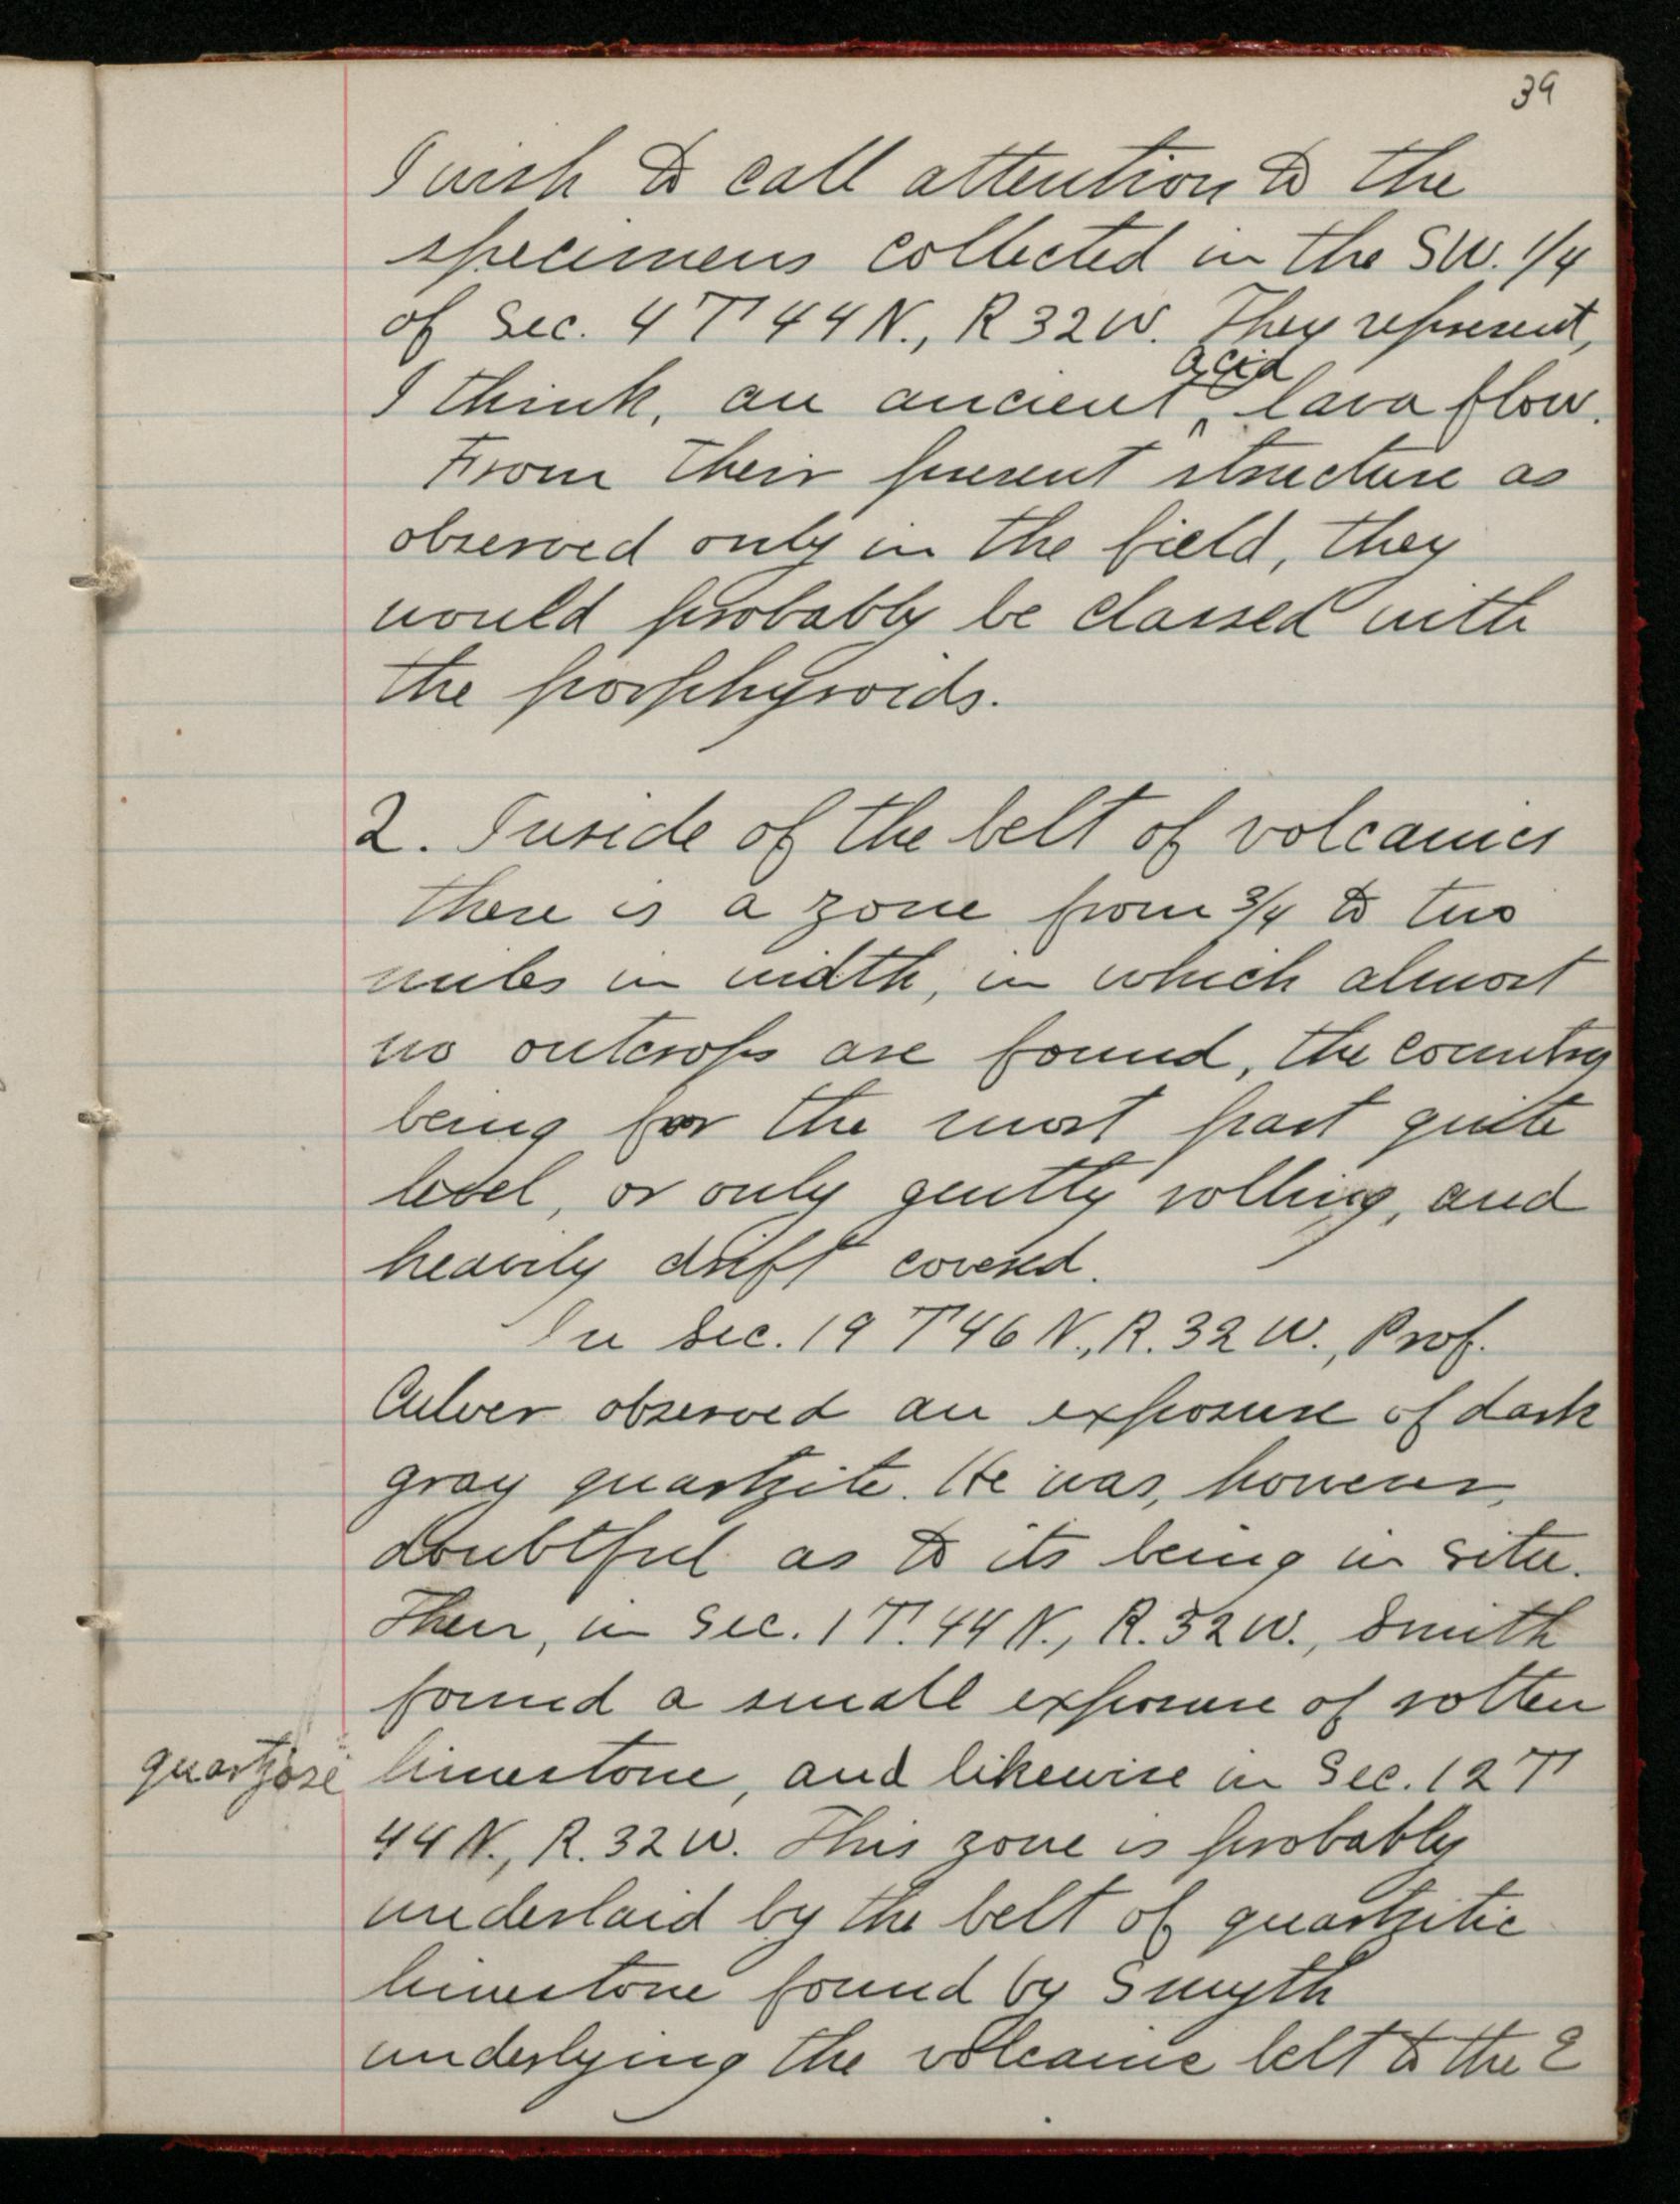 39
I wish to call attention to the
specimens collected in the SW. 1/4
of Sec. 4 T 44 N., R 32 W. They represent,
acid
I think, an ancient ^ lava flow.
From their present structure as
observed only in the field, they
would probably be classed with
the porphyroids.
2. Inside of the belt of volcanics
there is a zone from 3/4 to two
miles in width, in which almost
no outcrops are found, the country
being for the most part quite
level, or only gently rolling, and
heavily drift covered.
In Sec. 19 T 46 N., R. 32 W., Prof.
Culver observed an exposure of dark
gray quartzite. He was, however,
doubtful as to its being in situ.
Then, in Sec. 1 T. 44 N., R. 32 W., Smith
found a small exposure of rotten
quartzose limestone, and likewise in Sec. 12 T
44 N., R. 32 W. This zone is probably
underlaid by the belt of quartzitic
limestone found by Smyth
underlying the volcanic belt to the E